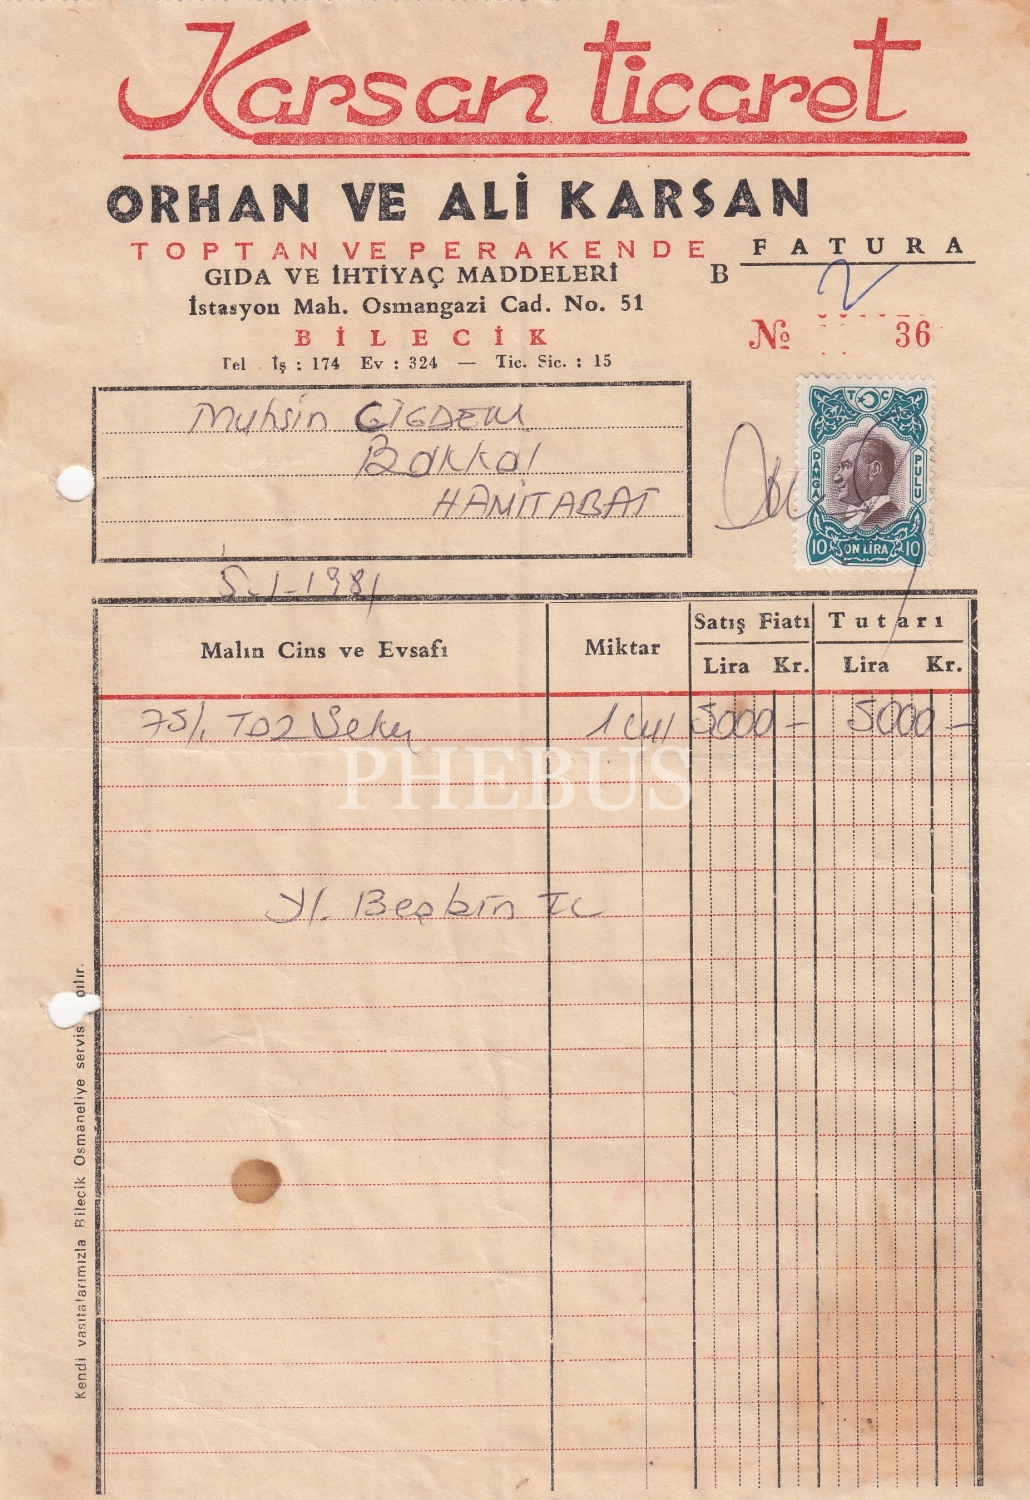 Karsan ticaret
ORHAN VE ALİ KARSAN
TOPTAN VE PERAKENDE
FATURA
GIDA VE İHTİYAÇ MADDELERİ
B
2
İstasyon Mah. Osmangazi Cad. No. 51
BİLECİK
№ 36
Tel İş : 174 Ev : 324 — Tic. Sic. : 15
Muhsin ÇİĞDEM
Bakkal
HAMİTABAT
T C
DAMGA PULU
10 ON LİRA 10
5-1-1981
Malın Cins ve Evsafı
Miktar
Satış Fiatı
Tutarı
Lira Kr.
Lira Kr.
Toz Şeker 1 5000 – 5000 –
PHEBUS
Y/. Beşbin TL
Kendi vasıtalarımızla Bilecik Osmaneliye servis